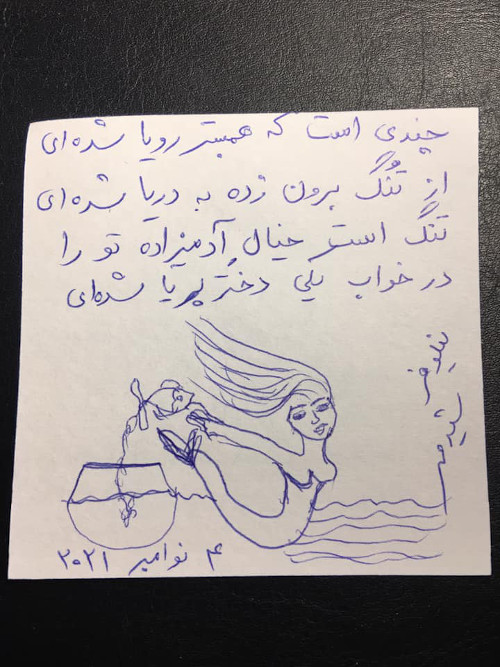 چندی است که همبستر رویا شده‌ای
از تُنگ برون زده به دریا شده‌ای
تنگ است خیالِ آدمیزاده تو را
در خواب یکی دخترِ پریا شده‌ای
نیلوفر شیدمهر
۴ نوامبر ۲۰۲۱